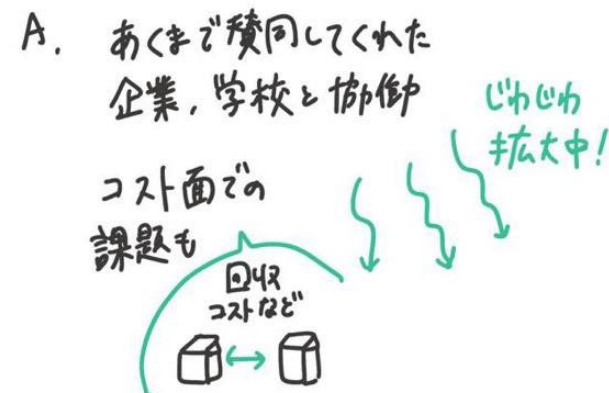 A. あくまで賛同してくれた
企業,学校と協働
じわじわ
拡大中!
コスト面での
課題も
回収
コストなど